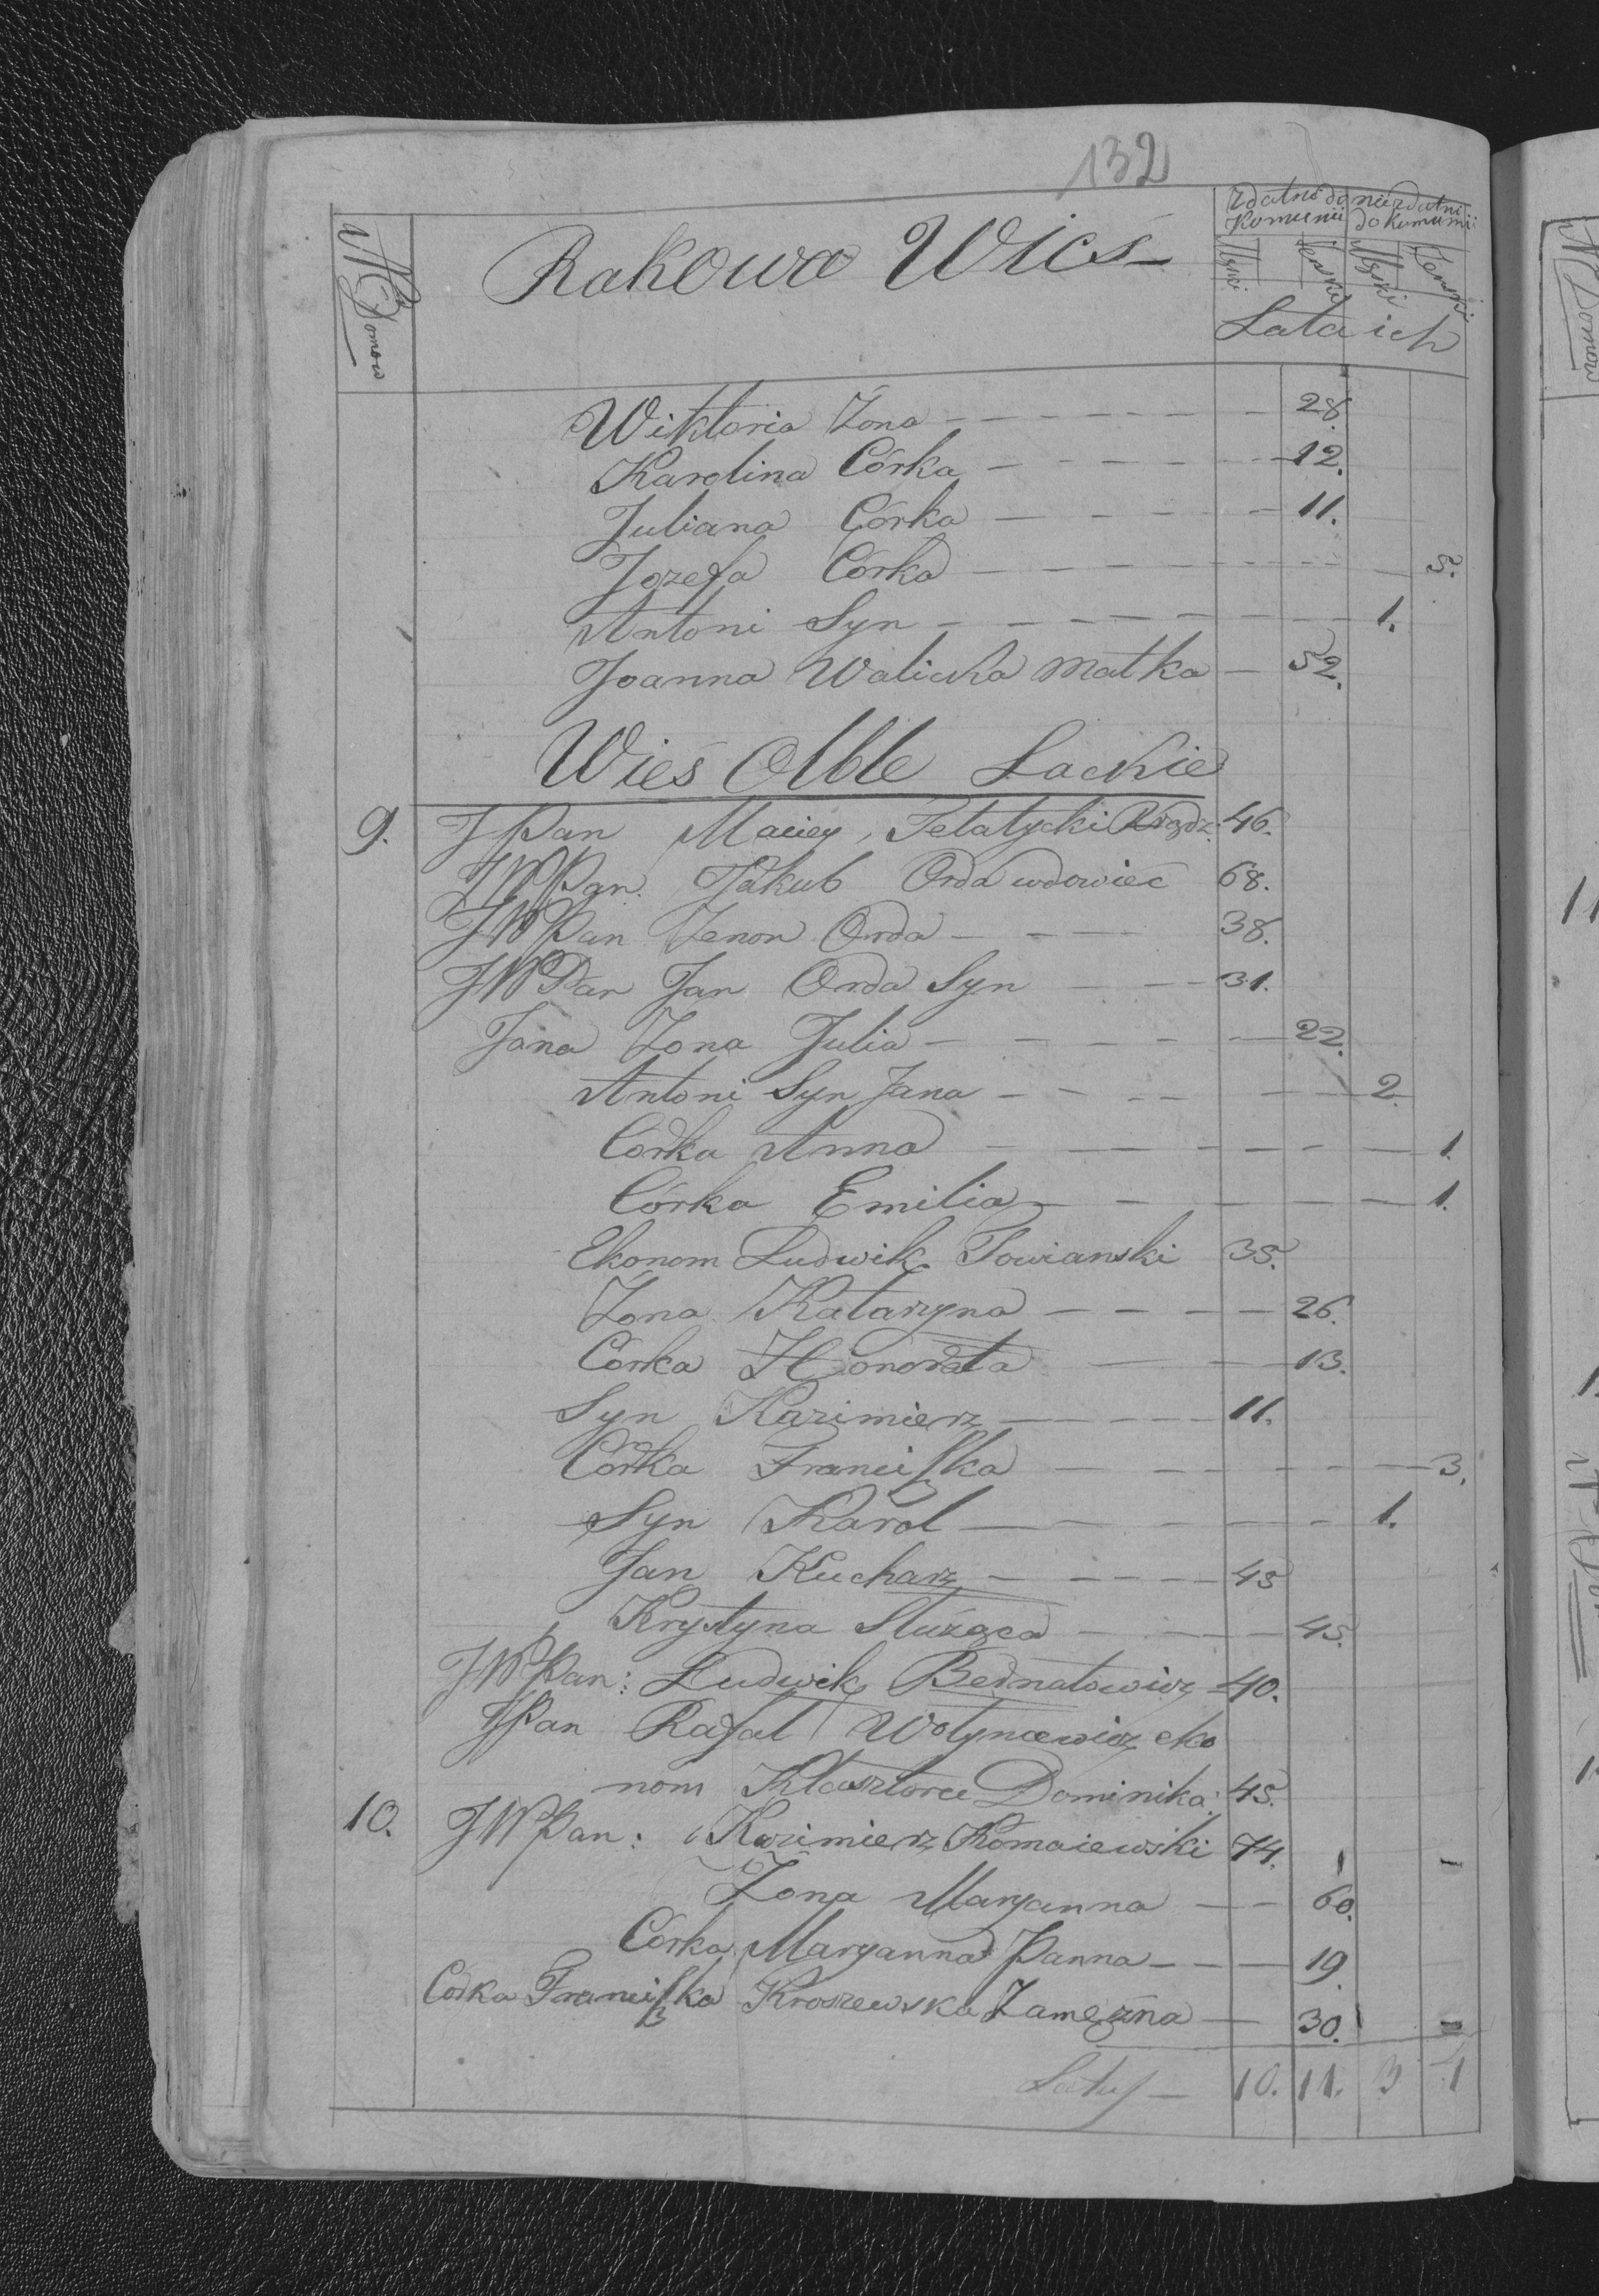 132
Nr Domow
Rakowa Wieś
zdatni do Komunii
niezdatni do Komunii
Męski
Żenski
Męski
Żenski
Lata ich
Wiktoria Zona — 28.
Karolina Córka — 12.
Juliana Córka — 11.
Jozefa Córka — 5.
Antoni Syn — 1.
Joanna Walicka Matka — 52.
Wieś Olble Lackie
9. JPan Maciey Telatycki Rządz: 46.
JWPan. Jakub Orda wdowiec 68.
JWPan Zenon Orda — 38.
JWPan Jan Orda Syn — 31.
Jana Zona Julia — 22.
Antoni Syn Jana — 2.
Córka Anna — 1.
Córka Emilia — 1.
Ekonom Ludwik Towianski 35.
Zona Katarzyna — 26.
Córka Honorata — 13.
Syn Kazimierz — 11.
Córka Franciszka — 3.
Syn Karol — 1.
Jan Kucharz — 45
Krystyna Służąca — 45.
JWPan: Ludwik Bednatowicz 40.
JPan Rafał Wołyncewicz eko
nom Klasztoru Dominika: 45.
10. JWPan: Kazimierz Romaiewski 74.
Zona Maryanna — 60.
Córka Maryanna Panna — 19.
Corka Franciszka Kroszewska Zamężna — 30.
Latus — 10. 11. 3 4